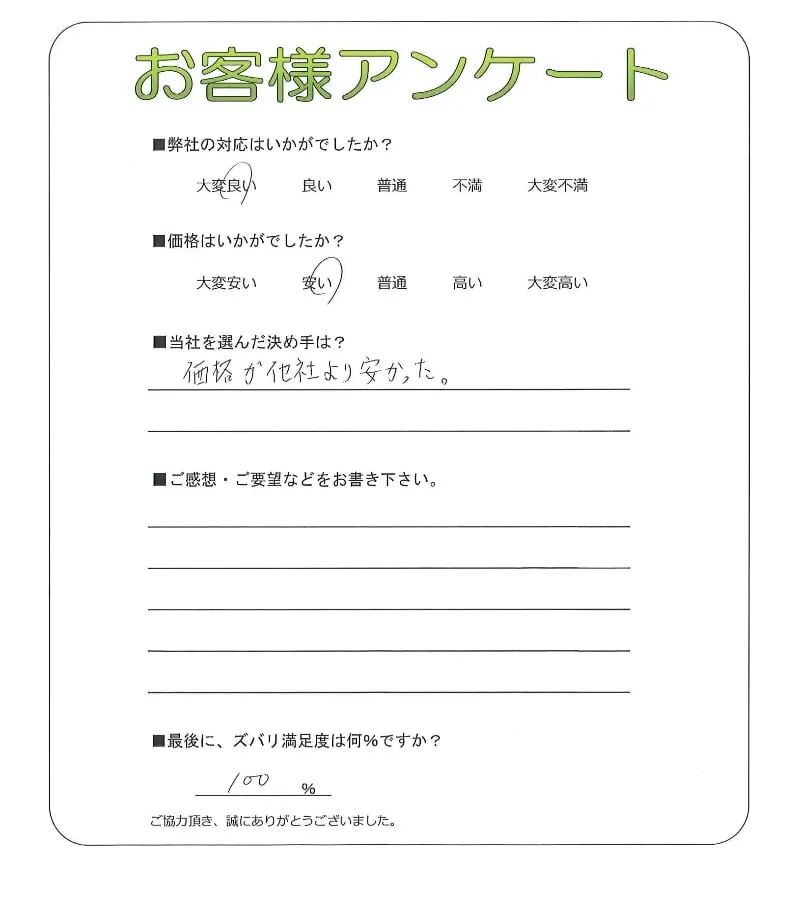 お客様アンケート
■弊社の対応はいかがでしたか？
大変良い 良い 普通 不満 大変不満
■価格はいかがでしたか？
大変安い 安い 普通 高い 大変高い
■当社を選んだ決め手は？
価格が他社より安かった。
■ご感想・ご要望などをお書き下さい。
■最後に、ズバリ満足度は何％ですか？
100 ％
ご協力頂き、誠にありがとうございました。